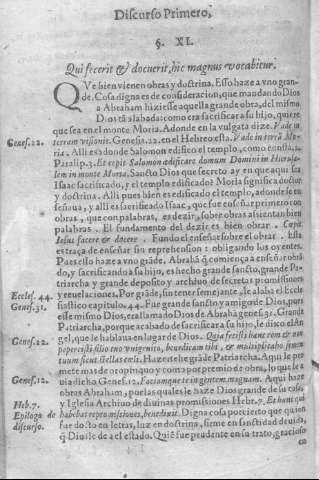 Discurso Primero,
§. XI.
Qui fecerit & docuerit, hic magnus vocabitur.
QVe bien vienen obras y doctrina. Esso haze a vno grande.
Cosa digna es de consideracion, que mandando Dios
a Abraham hiziesse aquella grande obra, del mismo
Dios tā alabada: como era sacrificar a su hijo, quiere
que sea en el monte Moria. Adonde en la vulgata dize. Vade in
Genes. 22.
terram visionis. Genes. 22. en el Hebreo esta. Vade in terrā Moria.
Alli es a donde Salomon edifico el templo, como consta. 2.
Paralip. 3. Et cepit Salomon ædificare domum Domini in Hierusalem
in monte Moria. Sancto Dios que secreto ay en que aqui sea
Isaac sacrificado, y el templo edificado? Moria significa doctor
y doctrina. Alli pues bien es edificado el templo, adonde se enseñaua,
y alli es sacrificado Isaac, que fue enseñar primero con
obras, que con palabras, es dezir, sobre obras assientan bien
palabras. El fundamento del dezir es bien obrar. Cœpit
Iesus facere & docere. Fundo el enseñar sobre el obrar. Esta
es traça de enseñar sin reprehension: obligando los oyentes.
Pues esso haze a vno grāde. Abrahā q̄ comença a enseñar obrādo,
y sacrificando a su hijo, es hecho grande sancto, grande Patriarcha
y grande deposito y archiuo de secretas promissiones
y reuelaciones. Por grāde, sin tener semejante, le alaba el Ecclesiastico
Eccles. 44.
capitulo. 44. Fue grande sancto y amigo de Dios, pues
Genes. 31.
esse mismo Dios, era llamado Dios de Abrahā genes. 31. Grande
Patriarcha, porque acabado de sacrificar a su hijo, le dixo el Angel,
que le hablaua en lugar de Dios. Quia fecisti hanc rem & non
Genes. 22.
pepercisti filio tuo vnigenito, benedicam tibi, & multiplicabo semen
tuum sicut stellas cœli. Hazerse he grāde Patriarcha. Aqui le promete
mas de proposito y como por premio de obra, lo que le auia
Genes. 12.
dicho Genes. 12. Faciamque te in gentem magnam. Aqui haze
obras Abraham, por las quales le haze Dios grande de su casa
y Iglesia Archiuo de diuinas promissiones Hebr. 7. Et hunc qui
Heb. 7.
habebat repromissiones, benedixit. Digna cosa por cierto que quien
Epilogo de discurso.
fue docto en letras, luz en doctrina, sirme en sanctidad de vida,